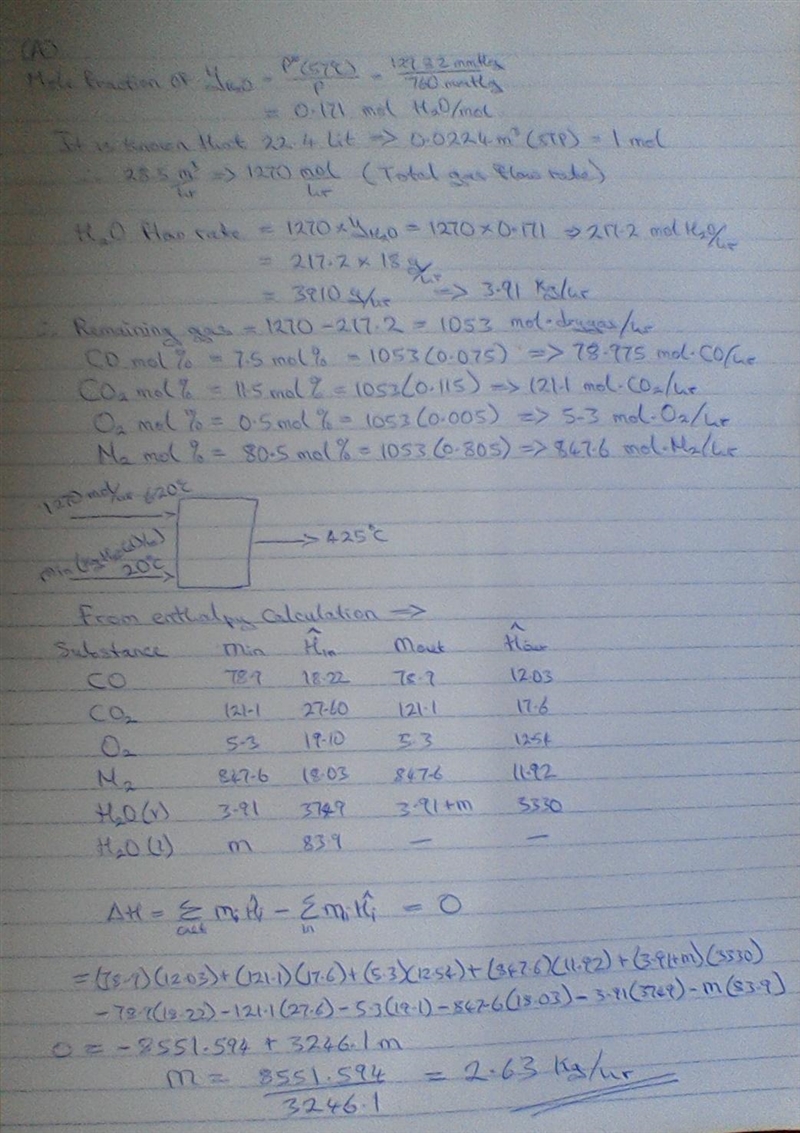 (A)
Mole fraction of yH₂O = P*(57°C)/P = 129.82 mmHg/760 mmHg
= 0.171 mol H₂O/mol
It is known that 22.4 Lit => 0.0224 m³ (STP) = 1 mol
∴ 28.5 m³/hr => 1270 mol/hr (Total gas flow rate)
H₂O flow rate = 1270 × yH₂O = 1270 × 0.171 => 217.2 mol H₂O/hr
= 217.2 × 18 g/hr
= 3910 g/hr => 3.91 Kg/hr
∴ Remaining gas = 1270 - 217.2 = 1053 mol·drygas/hr
CO mol % = 7.5 mol % = 1053(0.075) => 78.975 mol·CO/hr
CO₂ mol % = 11.5 mol % = 1053(0.115) => 121.1 mol·CO₂/hr
O₂ mol % = 0.5 mol % = 1053(0.005) => 5.3 mol·O₂/hr
N₂ mol % = 80.5 mol % = 1053(0.805) => 847.6 mol·N₂/hr
1270 mol/hr 620°C
425°C
20°C
From enthalpy calculation =>
Substance min Ĥin mout Ĥout
CO 78.9 18.22 78.9 12.03
CO₂ 121.1 27.60 121.1 17.6
O₂ 5.3 19.10 5.3 12.54
N₂ 847.6 18.03 847.6 11.92
H₂O(v) 3.91 3749 3.91+m 3330
H₂O(l) m 83.9 — —
ΔH = Σout miĤi - Σin miĤi = 0
= (78.9)(12.03) + (121.1)(17.6) + (5.3)(12.54) + (847.6)(11.92) + (3.91+m)(3330)
- 78.9(18.22) - 121.1(27.6) - 5.3(19.1) - 847.6(18.03) - 3.91(3749) - m(83.9)
0 = -8551.594 + 3246.1m
m = 8551.594/3246.1 = 2.63 Kg/hr